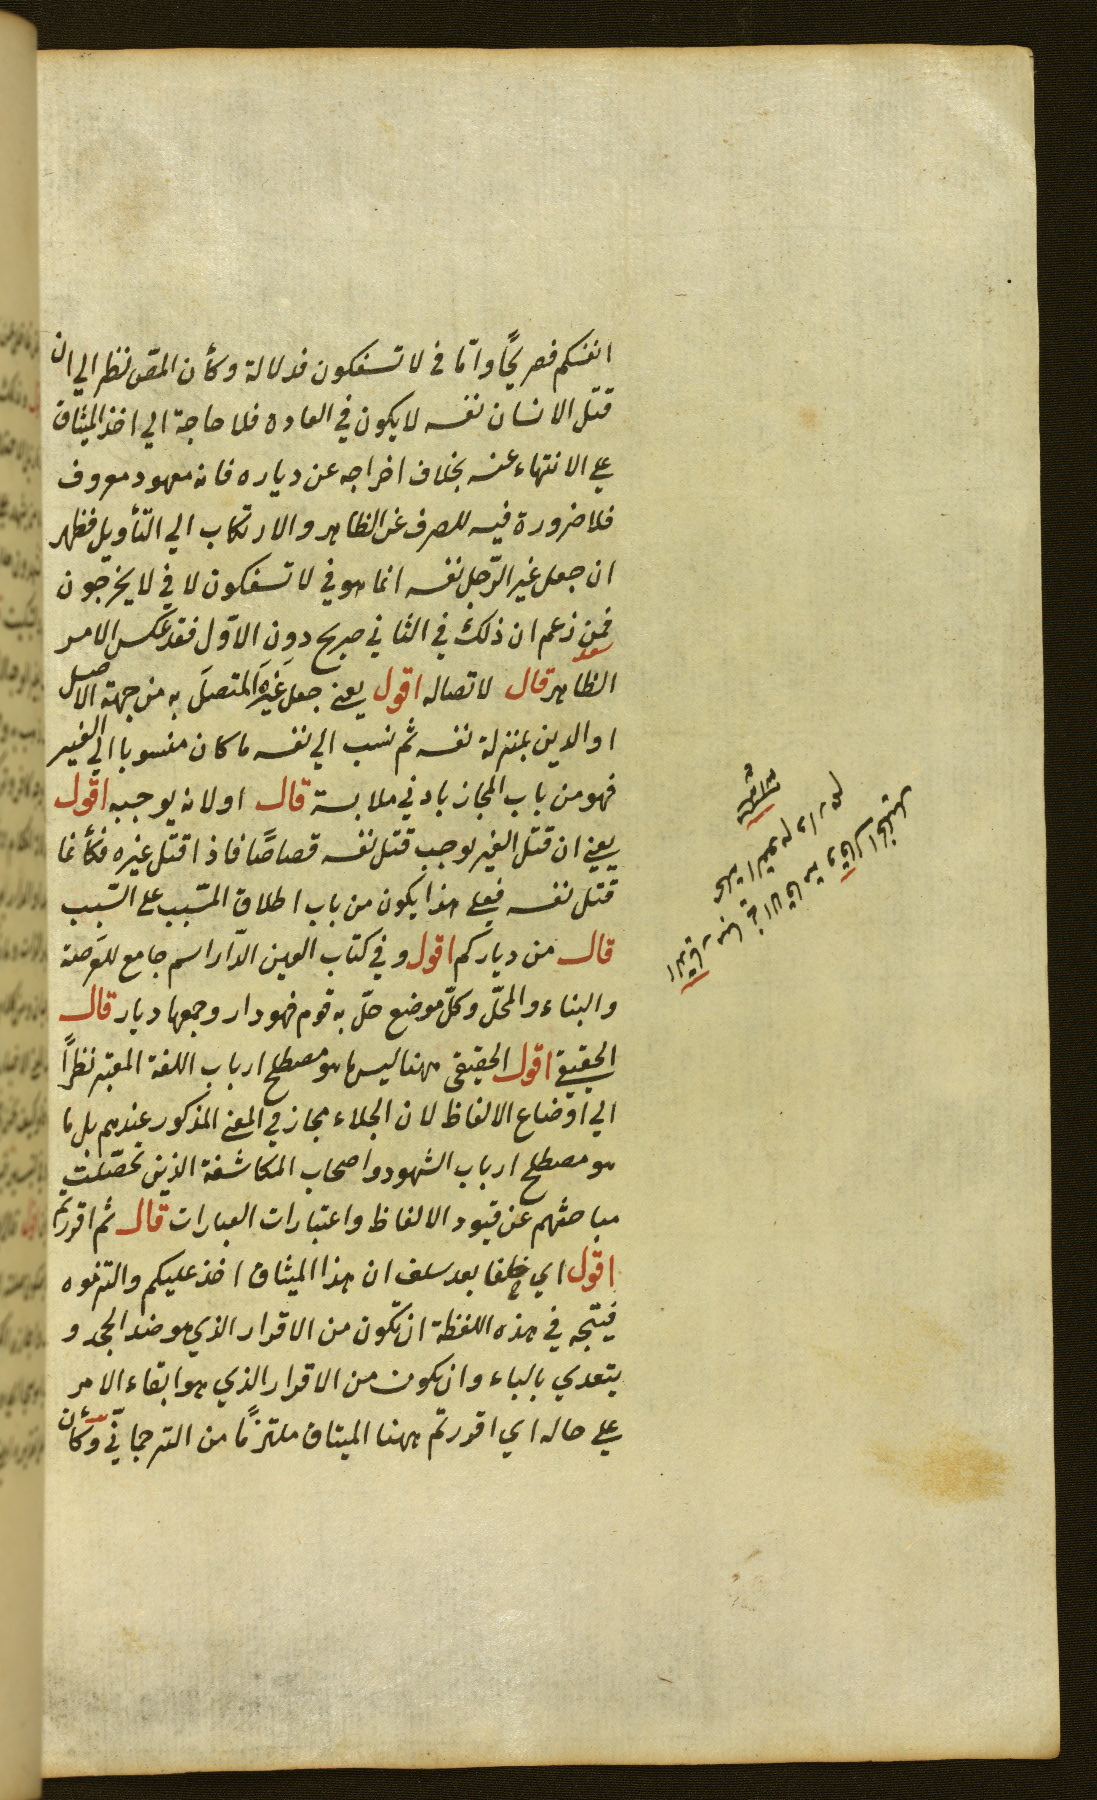 انفسكم فصريحًا وامّا في لا تسفكون فدلالة وكأن المصّ نظر الي ان
قتل الانسان نفسه لا يكون في العادة فلا حاجة الي اخذ الميثاق
علي الانتهاء عنه بخلاف اخراجه عن دياره فانه معهود معروف
فلا ضرورة فيه للصرف عن الظاهر والارتكاب الي التأويل فظهر
ان جعل غير الرّجل نفسه انما هو في لا تسفكون لا في لا يخرجون
فمن زعم ان ذلك في الثاني صريح دون الاوّل فقد عكس الامر
سعد
الظاهر قال لاتصاله اقول يعني جعل غيرَه المتصلَ به من جهة الاصل
او الدين بمنزلة نفسه ثم نسب الي نفسه ما كان منسوبا الي الغير
فهو من باب المجاز بادني ملابسة قال او لانه يوجبه اقول
يعني ان قتل الغير يوجب قتل نفسه قصاصًا فاذا قتل غيره فكأنما
قتل نفسه فعلي هذا يكون من باب اطلاق المسّبب علي السّبب
قال من دياركم اقول وفي كتاب العين الدّار اسم جامع للعَرصة
والبناء والمحلّ وكلّ موضع حلّ به قوم فهو دار وجمعها ديار قال
الحقيقي اقول الحقيقي ههنا ليس ما هو مصطلح ارباب اللغة المعتبر نظرًا
الي اوضاع الالفاظ لان الجلاء مجاز في المعني المذكور عندهم بل ما
هو مصطلح ارباب الشهود واصحاب المكاشفة الذين تحصّلت
مباحثهم عن قيود الالفاظ واعتبارات العبارات قال ثم اقررتم
اقول اي خلفا بعد سلف ان هذا الميثاق اخذ عليكم والتزموه
فيتّجه في هذه اللفظة ان تكون من الاقرار الذي هو ضد الجحد و
يتعدي بالباء وان يكون من الاقرار الذي هو ابقاء الامر
علي حاله اي اقررتم ههنا الميثاق ملتزمًا من الترجماتيّ وكأن